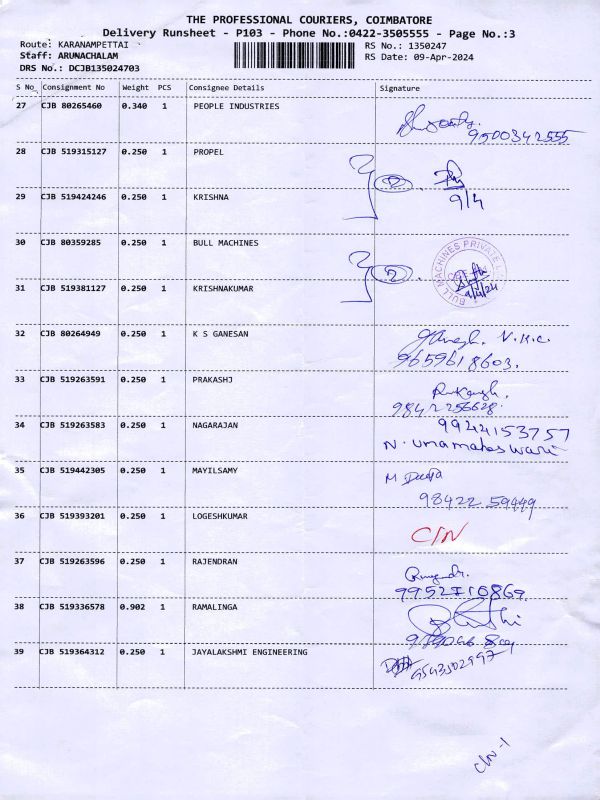 THE PROFESSIONAL COURIERS, COIMBATORE
Delivery Runsheet - P103 - Phone No.:0422-3505555 - Page No.:3
Route: KARANAMPETTAI RS No.: 1350247
Staff: ARUNACHALAM RS Date: 09-Apr-2024
DRS No.: DCJB135024703
S No Consignment No Weight PCS Consignee Details Signature
27 CJB 80265460 0.340 1 PEOPLE INDUSTRIES
9500342555
28 CJB 519315127 0.250 1 PROPEL
29 CJB 519424246 0.250 1 KRISHNA 9/4
30 CJB 80359285 0.250 1 BULL MACHINES
BULL MACHINES PRIVATE
31 CJB 519381127 0.250 1 KRISHNAKUMAR 9/4/24
32 CJB 80264949 0.250 1 K S GANESAN
9659618603.
33 CJB 519263591 0.250 1 PRAKASHJ
9842256628.
34 CJB 519263583 0.250 1 NAGARAJAN 9944153757
N. Umamaheswari
35 CJB 519442305 0.250 1 MAYILSAMY M Deepa
98422 59449
36 CJB 519393201 0.250 1 LOGESHKUMAR
C/N
37 CJB 519263596 0.250 1 RAJENDRAN
9952710869
38 CJB 519336578 0.902 1 RAMALINGA
39 CJB 519364312 0.250 1 JAYALAKSHMI ENGINEERING
9543502997
C/N-1